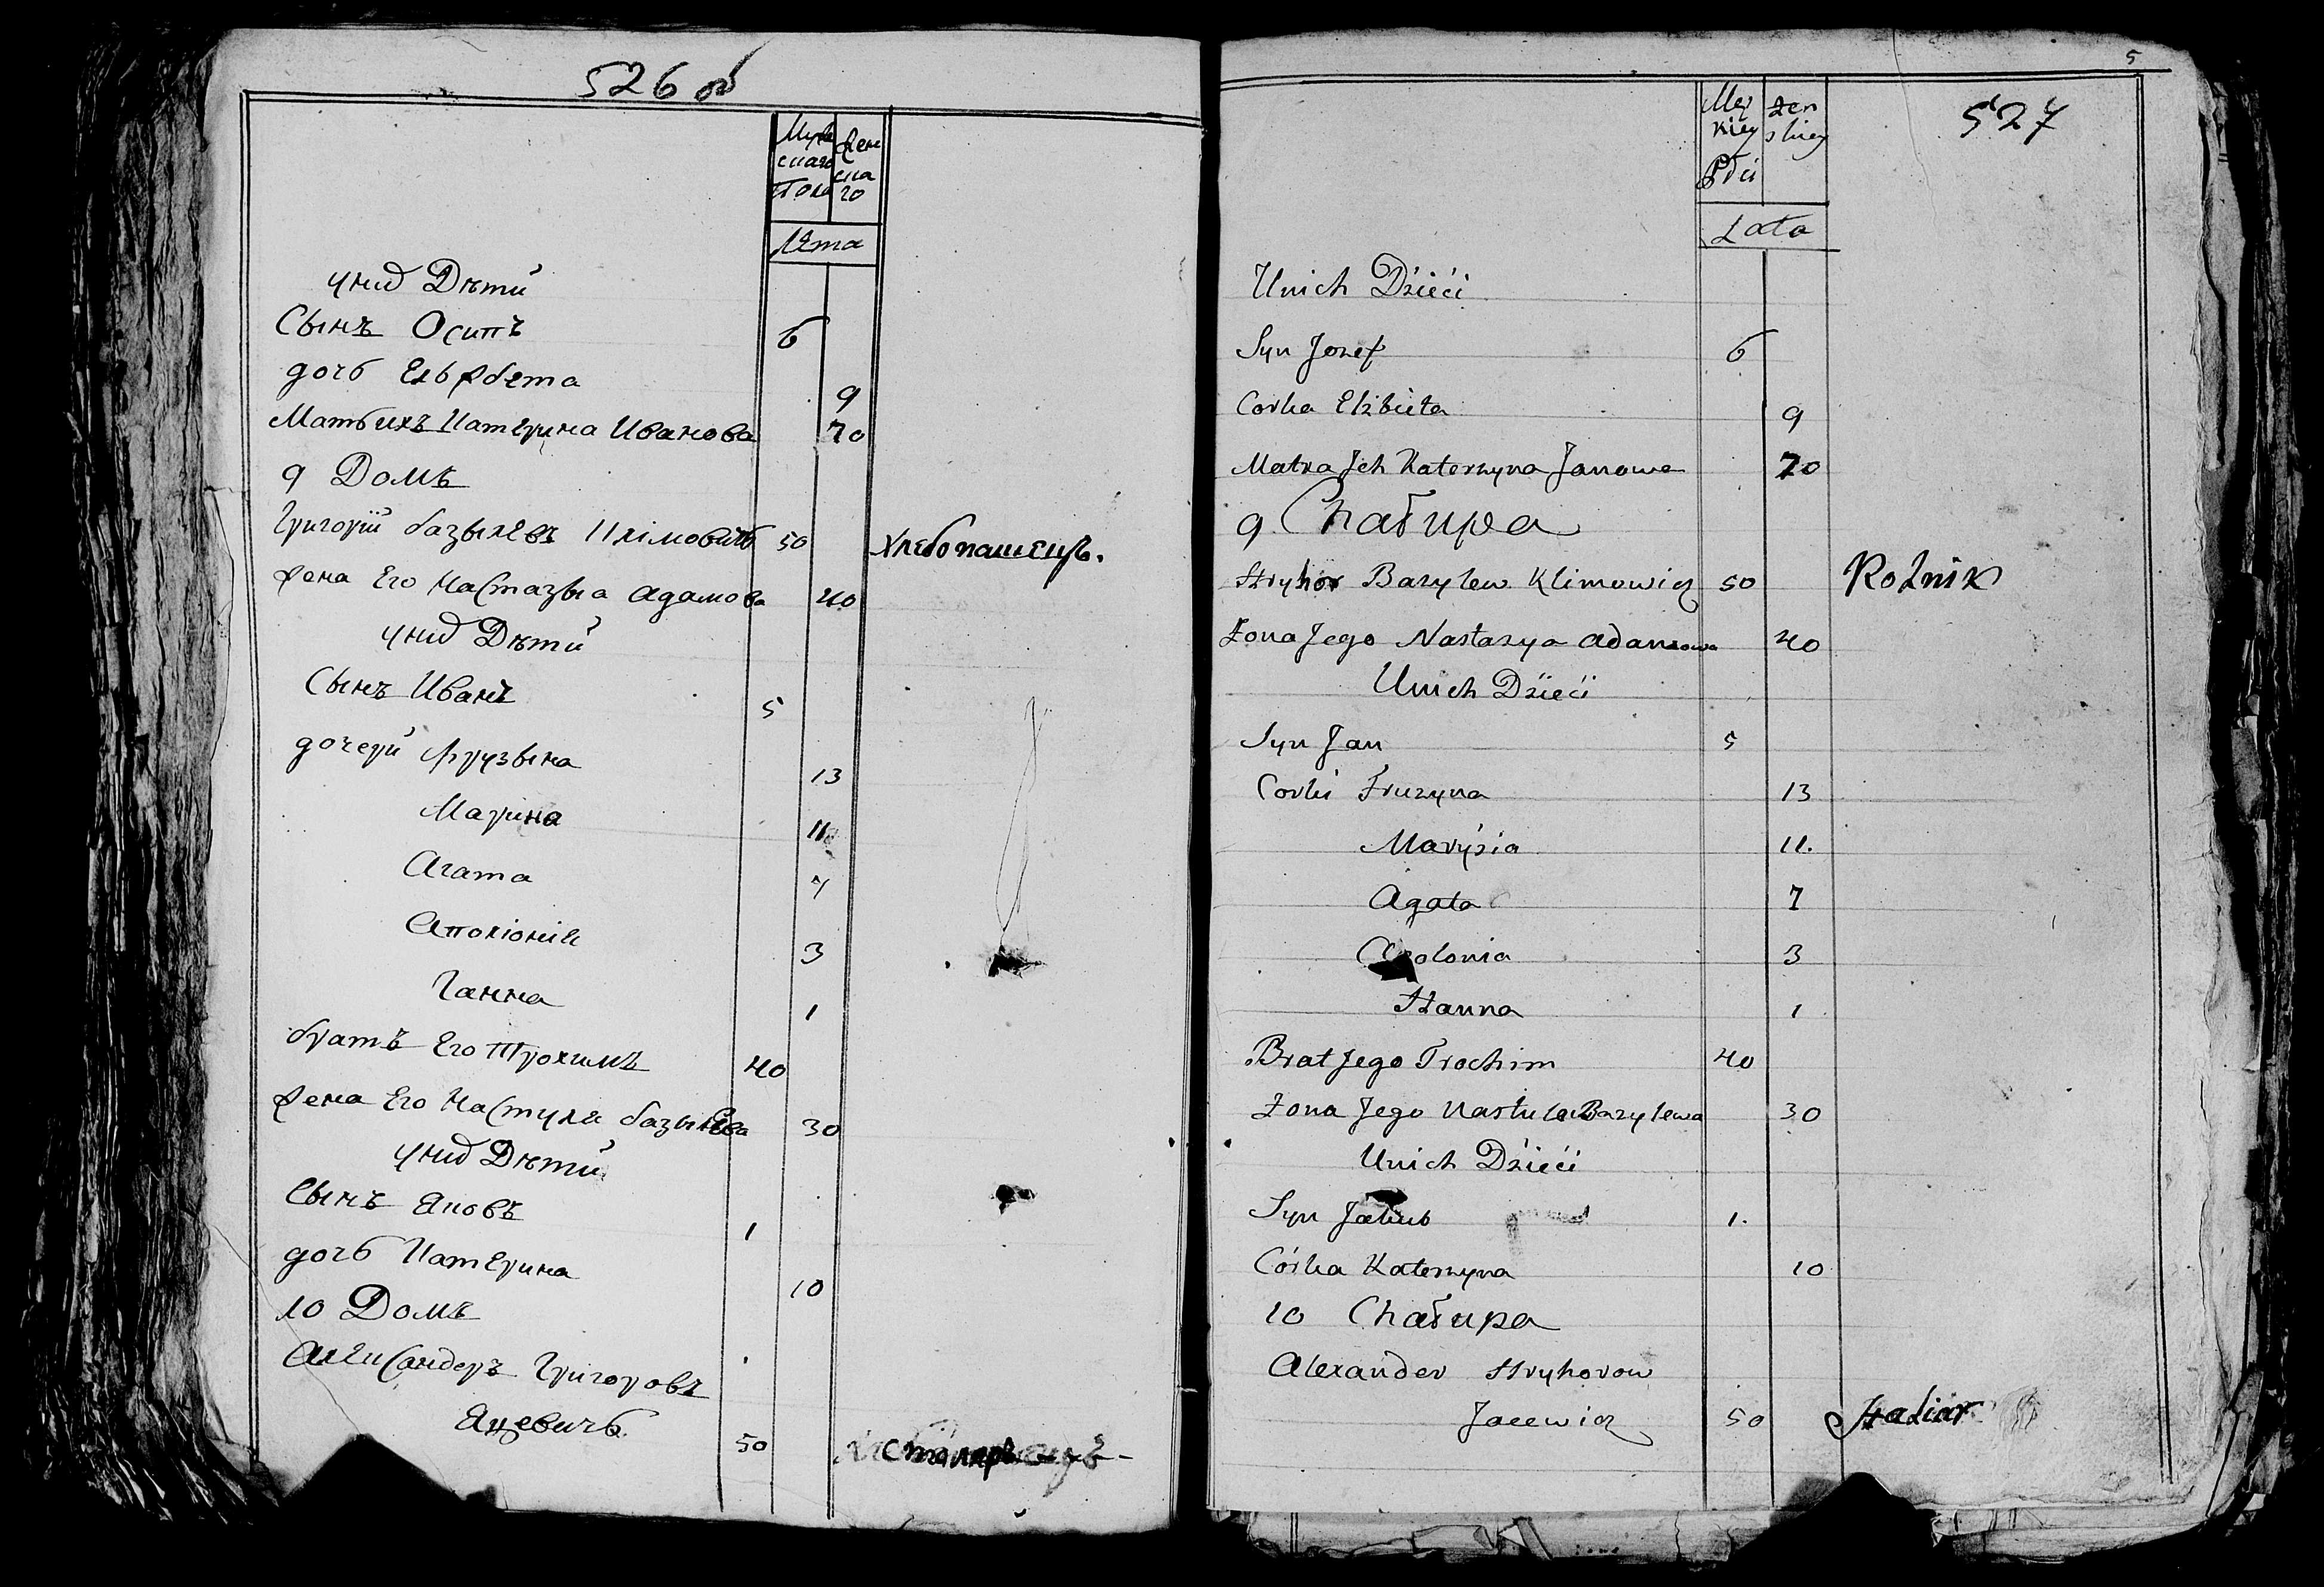 526 об
Муже
скаго
Пола
Жен
ска
го
Лѣта
у нихъ Дѣти
Сынъ Осипъ 6
дочь Ельжбета 9
Мать ихъ Катерина Иванова 70
9 Домъ
Григорій базылевъ Климовичъ 50 хлебопашецъ.
жена Его Настазыа адамова 40
у нихъ Дѣти
Сынъ Иванъ 5
дочери Фрузына 13
Марина 11
Агата 7
Аполіонія 3
Ганна 1
братъ Его Трохимъ 40
жена Его Настуля базылева 30
у нихъ Дѣти
Сынъ Яковъ 1
дочь Катерина 10
10 Домъ
Александеръ Григоровъ
Яцевичъ 50 столяръ
5
527
Męz
kiey
Płci
żen
skiey
Lata
Unich Dzieci
Syn Jozef 6
Corka Elzbieta 9
Matka Jch Katerzyna Janowa 70
9 Chałupa
Hryhor Bazylew Klimowicz 50 Rolnik
Zona Jego Nastazya adamowa 40
Unich Dzieci
Syn Jan 5
Corki Fruzyna 13
Marysia 11.
Agata 7
Apolonia 3
Hanna 1
Brat Jego Trochim 40
Zona Jego Nastula Bazylewa 30
Unich Dzieci
Syn Jakub 1.
Córka Katerzyna 10
10 Chałupa
Alexander Hryhorow
Jacewicz 50